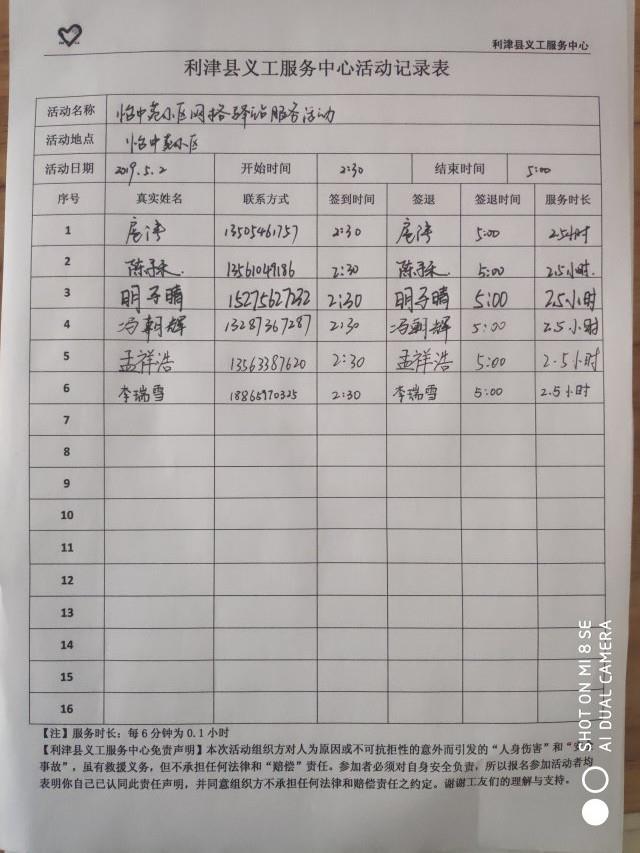 利津县义工服务中心
利津县义工服务中心活动记录表
活动名称 怡中苑小区网格驿站服务活动
活动地点 怡中苑小区
活动日期 2019.5.2 开始时间 2:30 结束时间 5:00
序号 真实姓名 联系方式 签到时间 签退 签退时间 服务时长
1 13505461757 2:30 5:00 2.5小时
2 13561049186 2:30 5:00 2.5小时.
3 明子晴 15275627232 2:30 明子晴 5:00 2.5小时
4 冯朝辉 13287367287 2:30 冯朝辉 5:00 2.5小时
5 孟祥浩 13563387620 2:30 孟祥浩 5:00 2.5小时
6 李瑞雪 18865970325 2:30 李瑞雪 5:00 2.5小时
7
8
9
10
11
12
13
14
15
16
【注】服务时长：每6分钟为0.1小时
【利津县义工服务中心免责声明】本次活动组织方对人为原因或不可抗拒性的意外而引发的“人身伤害”和“
事故”，虽有救援义务，但不承担任何法律和“赔偿”责任。参加者必须对自身安全负责，所以报名参加活动者均
表明你自己已认同此责任声明，并同意组织方不承担任何法律和赔偿责任之约定。谢谢工友们的理解与支持。
SHOT ON MI 8 SE
AI DUAL CAMERA